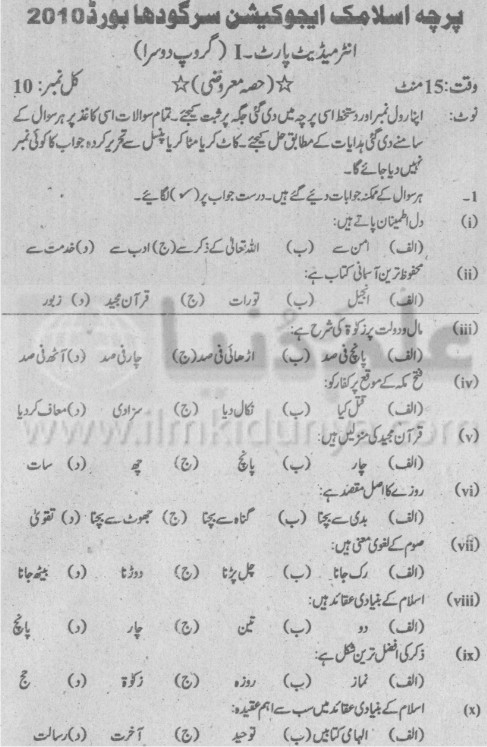 پرچہ اسلامک ایجوکیشن سرگودھا بورڈ 2010
انٹرمیڈیٹ پارٹ۔ I (گروپ دوسرا)
وقت: 15 منٹ ☆(حصہ معروضی)☆ کل نمبر: 10
نوٹ: اپنا رول نمبر اور دستخط اسی پرچہ میں دی گئی جگہ پر ثبت کیجئے۔ تمام سوالات اسی کاغذ پر ہر سوال کے
سامنے دی گئی ہدایات کے مطابق حل کیجئے۔ کاٹ کر یا مٹا کر یا پنسل سے تحریر کردہ جواب کا کوئی نمبر
نہیں دیا جائے گا۔
1۔ ہر سوال کے ممکنہ جوابات دیئے گئے ہیں۔ درست جواب پر (✓) لگائیے۔
(i) دل اطمینان پاتے ہیں:
(الف) امن سے (ب) اللہ تعالیٰ کے ذکر سے (ج) ادب سے (د) خدمت سے
(ii) محفوظ ترین آسمانی کتاب ہے:
(الف) انجیل (ب) تورات (ج) قرآن مجید (د) زبور
(iii) مال و دولت پر زکوٰۃ کی شرح ہے:
(الف) پانچ فی صد (ب) اڑھائی فی صد (ج) چار فی صد (د) آٹھ فی صد
(iv) فتح مکہ کے موقع پر کفار کو:
(الف) قتل کیا (ب) نکال دیا (ج) سزا دی (د) معاف کر دیا
(v) قرآن مجید کی منزلیں ہیں:
(الف) چار (ب) پانچ (ج) چھ (د) سات
(vi) روزے کا اصل مقصد ہے:
(الف) بدی سے بچنا (ب) گناہ سے بچنا (ج) جھوٹ سے بچنا (د) تقویٰ
(vii) صوم کے لغوی معنی ہیں:
(الف) رک جانا (ب) چل پڑنا (ج) دوڑنا (د) بیٹھ جانا
(viii) اسلام کے بنیادی عقائد ہیں:
(الف) دو (ب) تین (ج) چار (د) پانچ
(ix) ذکر کی افضل ترین شکل ہے:
(الف) نماز (ب) روزہ (ج) زکوٰۃ (د) حج
(x) اسلام کے بنیادی عقائد میں سب سے اہم عقیدہ:
(الف) الہامی کتابیں (ب) توحید (ج) آخرت (د) رسالت
علم کی دنیا
www.ilmkidunya.com